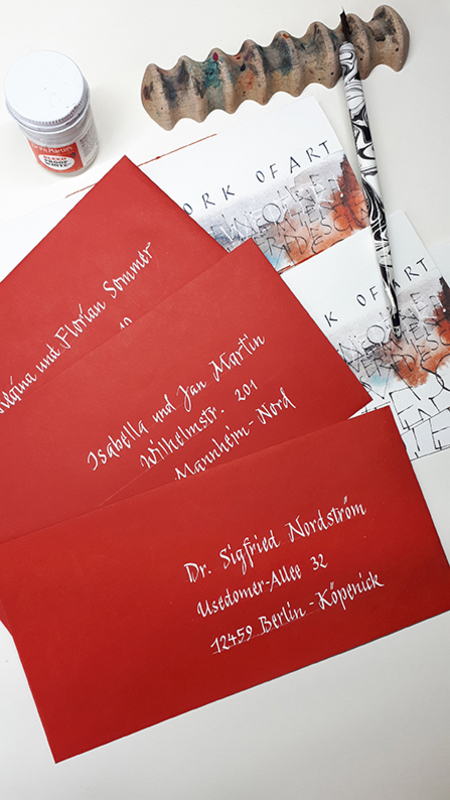 Dr. Ph. Martin's
BLEED
PROOF
WHITE
ORK OF ART
K OF ART
und Florian Sommer
Isabella und Jan Martin
Wilhelmstr. 201
Mannheim-Nord
Dr. Sigfried Nordström
Usedomer-Allee 32
12459 Berlin-Köpenick